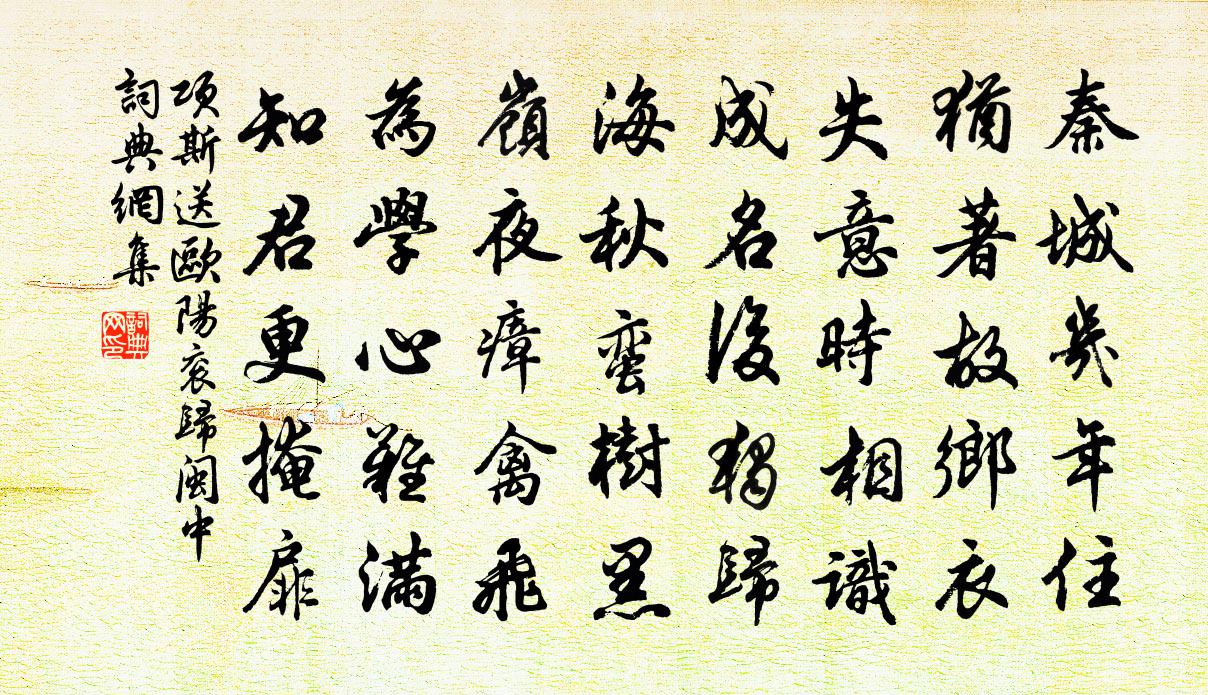 秦城幾年住
猶著故鄉衣
失意時相識
成名後獨歸
海秋蠻樹黑
嶺夜瘴禽飛
為學心難滿
知君更掩扉
項斯送歐陽袞歸閩中
詞典網集
詞典網印